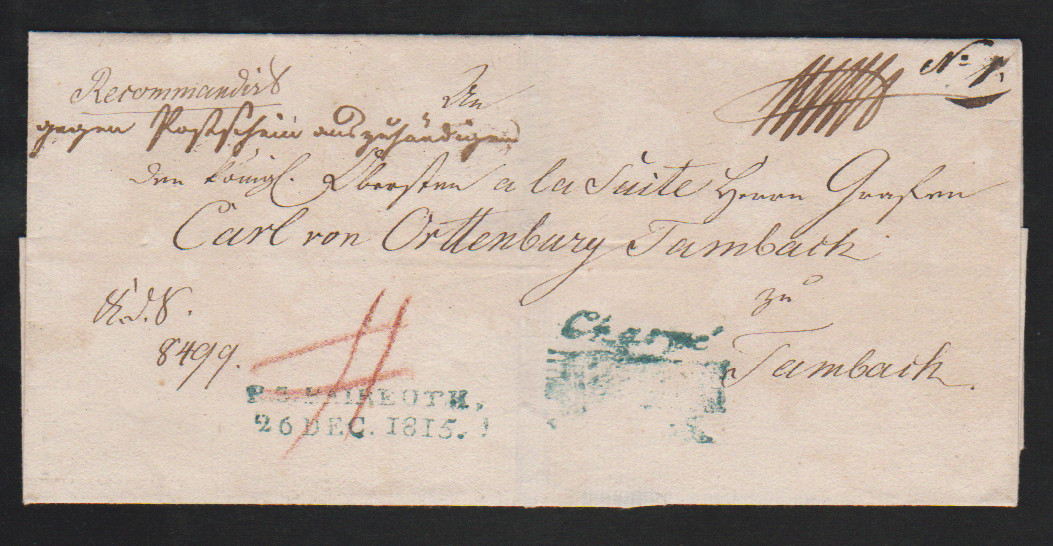 Recommandirt
No 1.
An
gegen Postschein auszuhändigen
den königl. Obersten a la Suite Herrn Grafen
Carl von Orttenburg Tambach
zu
Tambach.
8499.
Chargé
26 DEC. 1815.